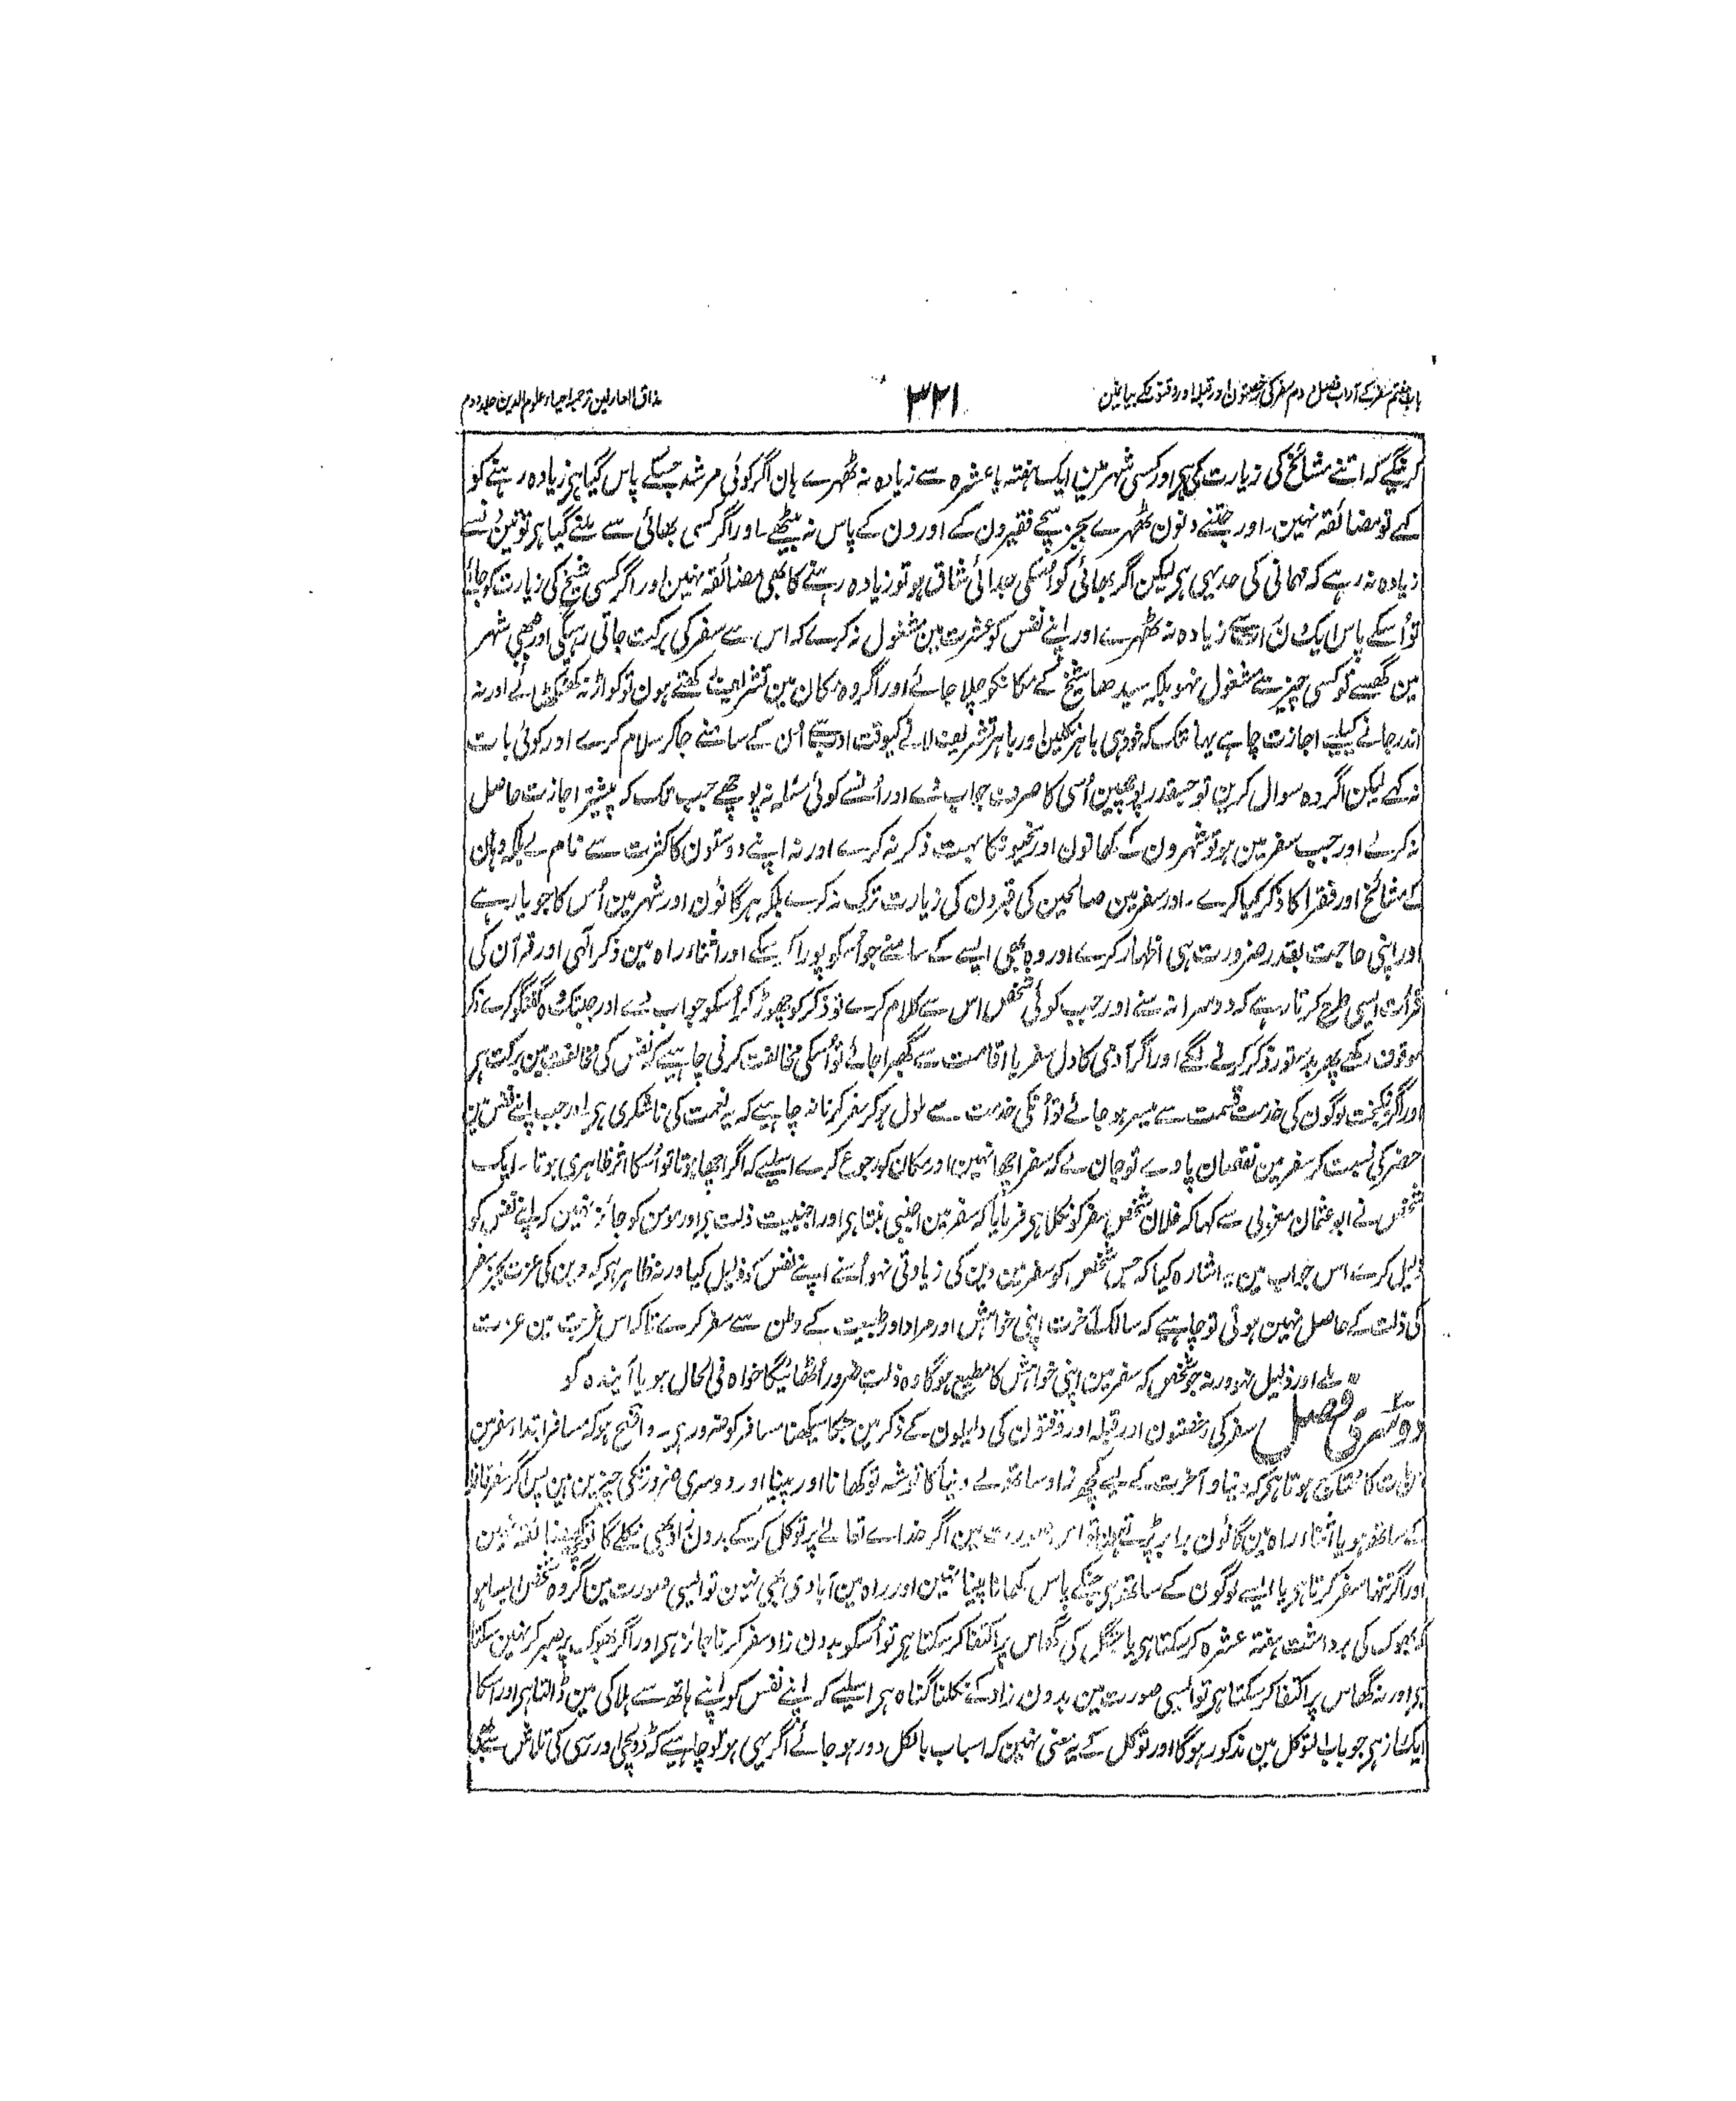 باب ہفتم سفر کے آداب فصل دوم سفر کی رخصتون اور قبلہ اور وقتونکے بیانمین
۳۲۱
مذاق العارفین ترجمہ احیاء علوم الدین جلد دوم
کرینگے کہ اتنے مشائخ کی زیارت کی ہی اور کسی شہر مین ایک ہفتہ یا عشرہ سے زیادہ نہ ٹھہرے ہان اگر کوئی مرشد جسکے پاس گیا ہی زیادہ رہنے کو
کہے تو مضائقہ نہین ۔ اور جتنے دنون ٹھہرے بجز سچے فقیرون کے اورون کے پاس نہ بیٹھے ۔ اور اگر کسی بھائی سے ملنے گیا ہی تو تین دن سے
زیادہ نہ رہے کہ مہمانی کی حد یہی ہی لیکن اگر بھائی کو اُسکی جدائی شاق ہو تو زیادہ رہنے کا بھی مضائقہ نہین اور اگر کسی شیخ کی زیارت کو جائے
تو اُسکے پاس ایک دن رات سے زیادہ نہ ٹھہرے اور اپنے نفس کو عشرت مین مشغول نہ کرے کہ اس سے سفر کی برکت جاتی رہیگی اور جبھی شہر
مین گھسے تو کسی چیز سے مشغول نہو بلکہ سیدھا شیخ کے مکانکو چلا جائے اور اگر وہ مکان مین تشریف رکھتے ہون تو کواڑ نہ کھٹکھٹائے اور نہ
اندر جانے کیلیے اجازت چاہے یہانتک کہ خود ہی باہر نکلین اور باہر تشریف لانے کیوقت ادب سے اُن کے سامنے جاکر سلام کرے اور کوئی بات
نہ کہے لیکن اگر وہ سوال کرین تو جسقدر پوچھین اُسی کا صرف جواب دے اور اُنسے کوئی مسئلہ نہ پوچھے جب تک کہ پیشتر اجازت حاصل
نہ کرلے اور جب سفر مین ہو تو شہرون کے کھانون اور سخیونکا بہت ذکر نہ کرے اور نہ اپنے دوستون کا کثرت سے نام لے بلکہ وہان
کے مشائخ اور فقرا کا ذکر کیا کرے ۔ اور سفر مین صالحین کی قبرون کی زیارت ترک نہ کرے بلکہ ہر گانؤن اور شہر مین اُس کا جویا رہے
اور اپنی حاجت بقدر ضرورت ہی اظہار کرے اور وہ بھی ایسے کے سامنے جو اُسکو پورا کرسکے اور اثناء راہ مین ذکر الٰہی اور قرآن کی
قرأت ایسی طرح کرتا رہے کہ دوسرا نہ سنے اور جب کوئی شخص اس سے کلام کرے تو ذکر کو چھوڑ کر اُسکو جواب دے اور جبتک وہ گفتگو کرے ذکر
موقوف رکھے پھر بدستور ذکر کرنے لگے اور اگر آدمی کا دل سفر یا اقامت سے گھبرا جائے تو اُسکی مخالفت کرنی چاہیے کہ نفس کی مخالفت مین برکت ہی
اور اگر نیکبخت لوگون کی خدمت قسمت سے میسر ہوجائے تو اُنکی خدمت سے ملول ہوکر سفر کرنا نہ چاہیے کہ یہ نعمت کی ناشکری ہی اور جب اپنے نفس مین
حضر کی نسبت کر سفر مین نقصان پاوے تو جان لے کہ سفر اچھا نہین اور مکان کو رجوع کرے اسلیے کہ اگر اچھا ہوتا تو اُسکا اثر ظاہر ہی ہوتا ۔ ایک
شخص نے ابو عثمان مغربی سے کہا کہ فلان شخص سفر کو نکلا ہی فرمایا کہ سفر مین اجنبی بنتا ہی اور اجنبیت ذلت ہی اور مومن کو جائز نہین کہ اپنے نفس کو
ذلیل کرے اس جواب مین یہ اشارہ کیا کہ جس شخص کو سفر مین دین کی زیادتی نہو اُسنے اپنے نفس کو ذلیل کیا ورنہ ظاہر ہی کہ دین کی عزت بجز سفر
کی ذلت کے حاصل نہین ہوتی تو چاہیے کہ سالک آخرت اپنی خواہش اور مراد اور طبیعت کے وطن سے سفر کرے تاکہ اس غربت مین عزت
ملے اور ذلیل نہو ورنہ جو شخص کہ سفر مین اپنی خواہش کا مطیع ہوگا وہ ذلت ضرور اُٹھائیگا خواہ فی الحال ہو یا آیندہ کو
دوسری فصل سفر کی رخصتون اور قبلہ اور وقتون کی دلیلون کے ذکر مین جنکا سیکھنا مسافر کو ضرور ہی ۔ واضح ہو کہ مسافر ابتداء سفر مین
بات کا محتاج ہوتا ہی کہ دنیا و آخرت کے لیے کچھ زاد ساتھ لے دنیا کا توشہ تو کھانا اور پینا اور دوسری ضرورتکی چیزین ہین پس اگر سفر قافلہ
کے ساتھ ہو یا اثناء راہ مین گانؤن برابر پڑتے ہون تو اس صورت مین اگر خداے تعالےٰ پر توکل کرکے بدون زاد بھی نکلے گا تو کچھ مضائقہ نہین
اور اگر تنہا سفر کرتا ہی یا ایسے لوگون کے ساتھ ہی جنکے پاس کھانا پینا نہین اور راہ مین آبادی بھی نہین تو ایسی صورت مین اگر وہ شخص ایسا ہو
کہ بھوک کی برداشت ہفتہ عشرہ کرسکتا ہی یا جنگل کی گھاس پر اکتفا کرسکتا ہی تو اُسکو بدون زاد سفر کرنا جائز ہی اور اگر بھوک پر صبر کر نہین سکتا
ہی اور نہ گھاس پر اکتفا کرسکتا ہی تو ایسی صورت مین بدون زاد کے نکلنا گناہ ہی اسلیے کہ اپنے نفس کو اپنے ہاتھ سے ہلاکی مین ڈالتا ہی اور اُسکا
ایک راز ہی جو باب التوکل مین مذکور ہوگا اور توکل کے یہ معنی نہین کہ اسباب بالکل دور ہو جائے اگر یہی ہو تو چاہیے کہ ڈولچی اور رسی کی تلاش سے بھی